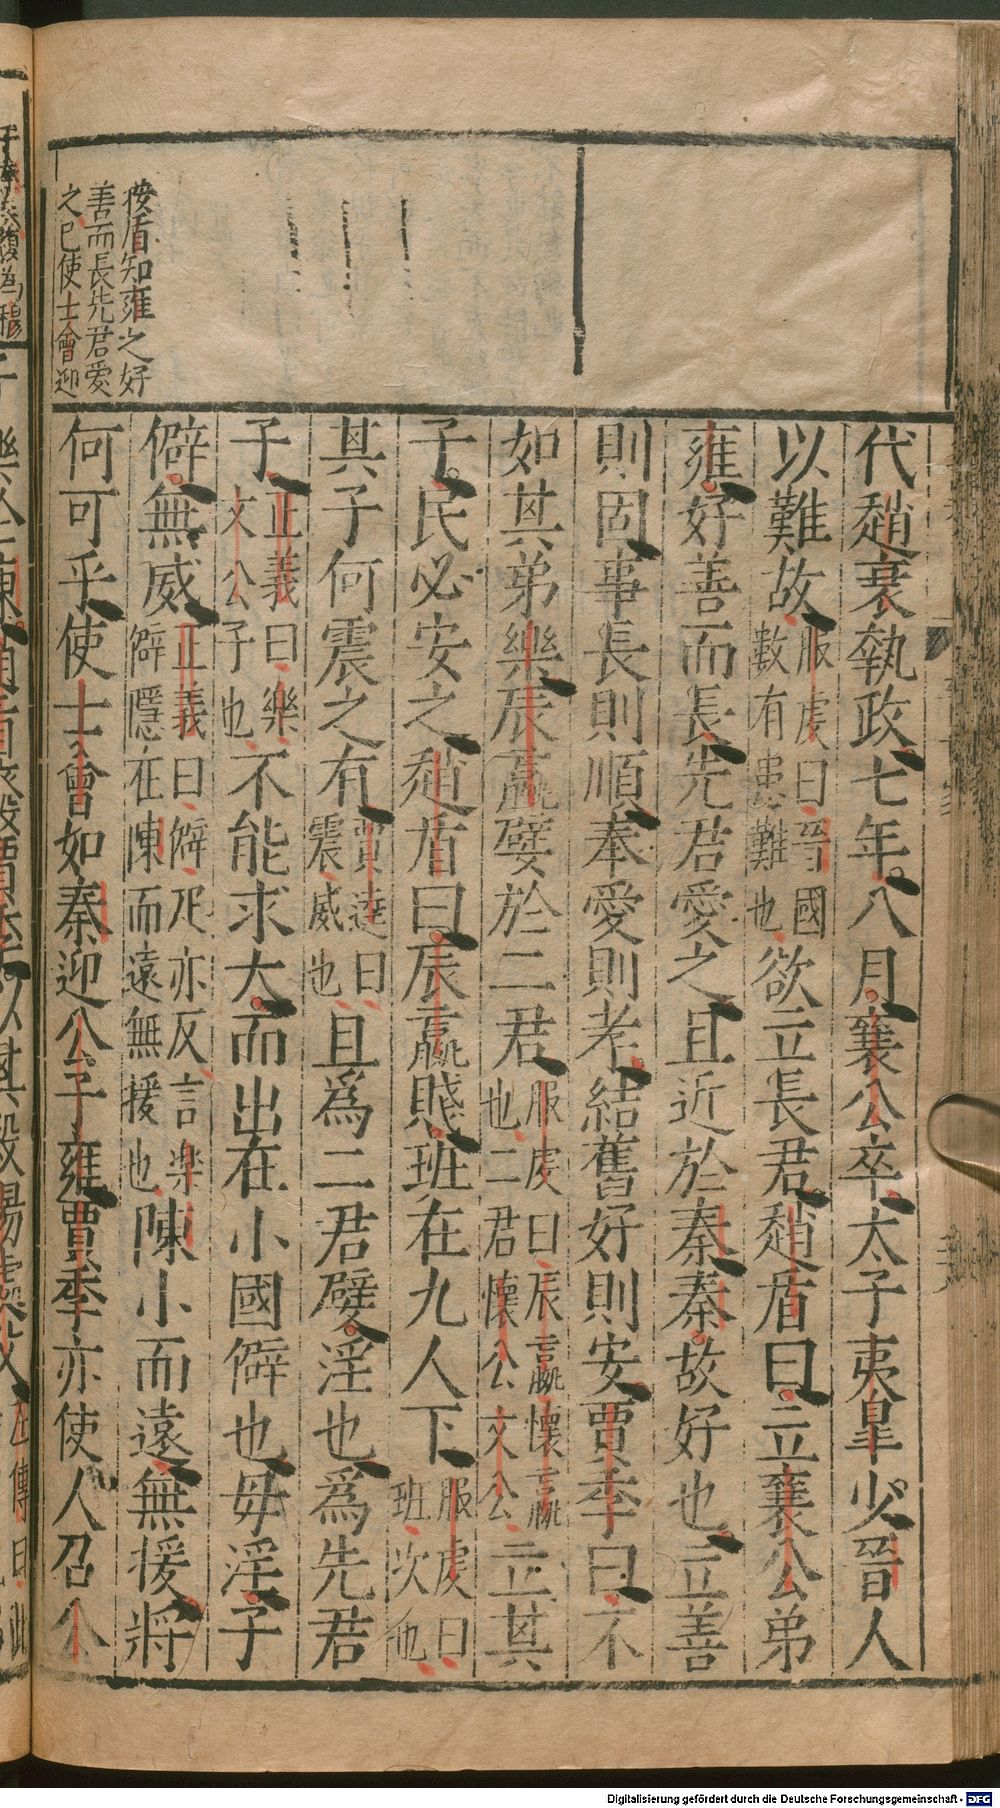 按盾知雍之好
善而長先君愛
之已使士會迎
代趙衰執政七年八月襄公卒太子夷皐少晉人
以難故服虔曰晉國數有患難也欲立長君趙盾曰立襄公弟
雍好善而長先君愛之且近於秦秦故好也立善
則固事長則順奉愛則孝結舊好則安賈季曰不
如其弟樂辰嬴嬖於二君服虔曰辰嬴懷嬴也二君懷公文公立其
子民必安之趙盾曰辰嬴賤班在九人下服虔曰班次也
其子何震之有賈逵曰震威也且爲二君嬖淫也爲先君
子正義曰樂文公子也不能求大而出在小國僻也母淫子
僻無威正義曰僻疋亦反言樂僻隱在陳而遠無援也陳小而遠無援將
何可乎使士會如秦迎公子雍賈季亦使人召公
Digitalisierung gefördert durch die Deutsche Forschungsgemeinschaft - DFG